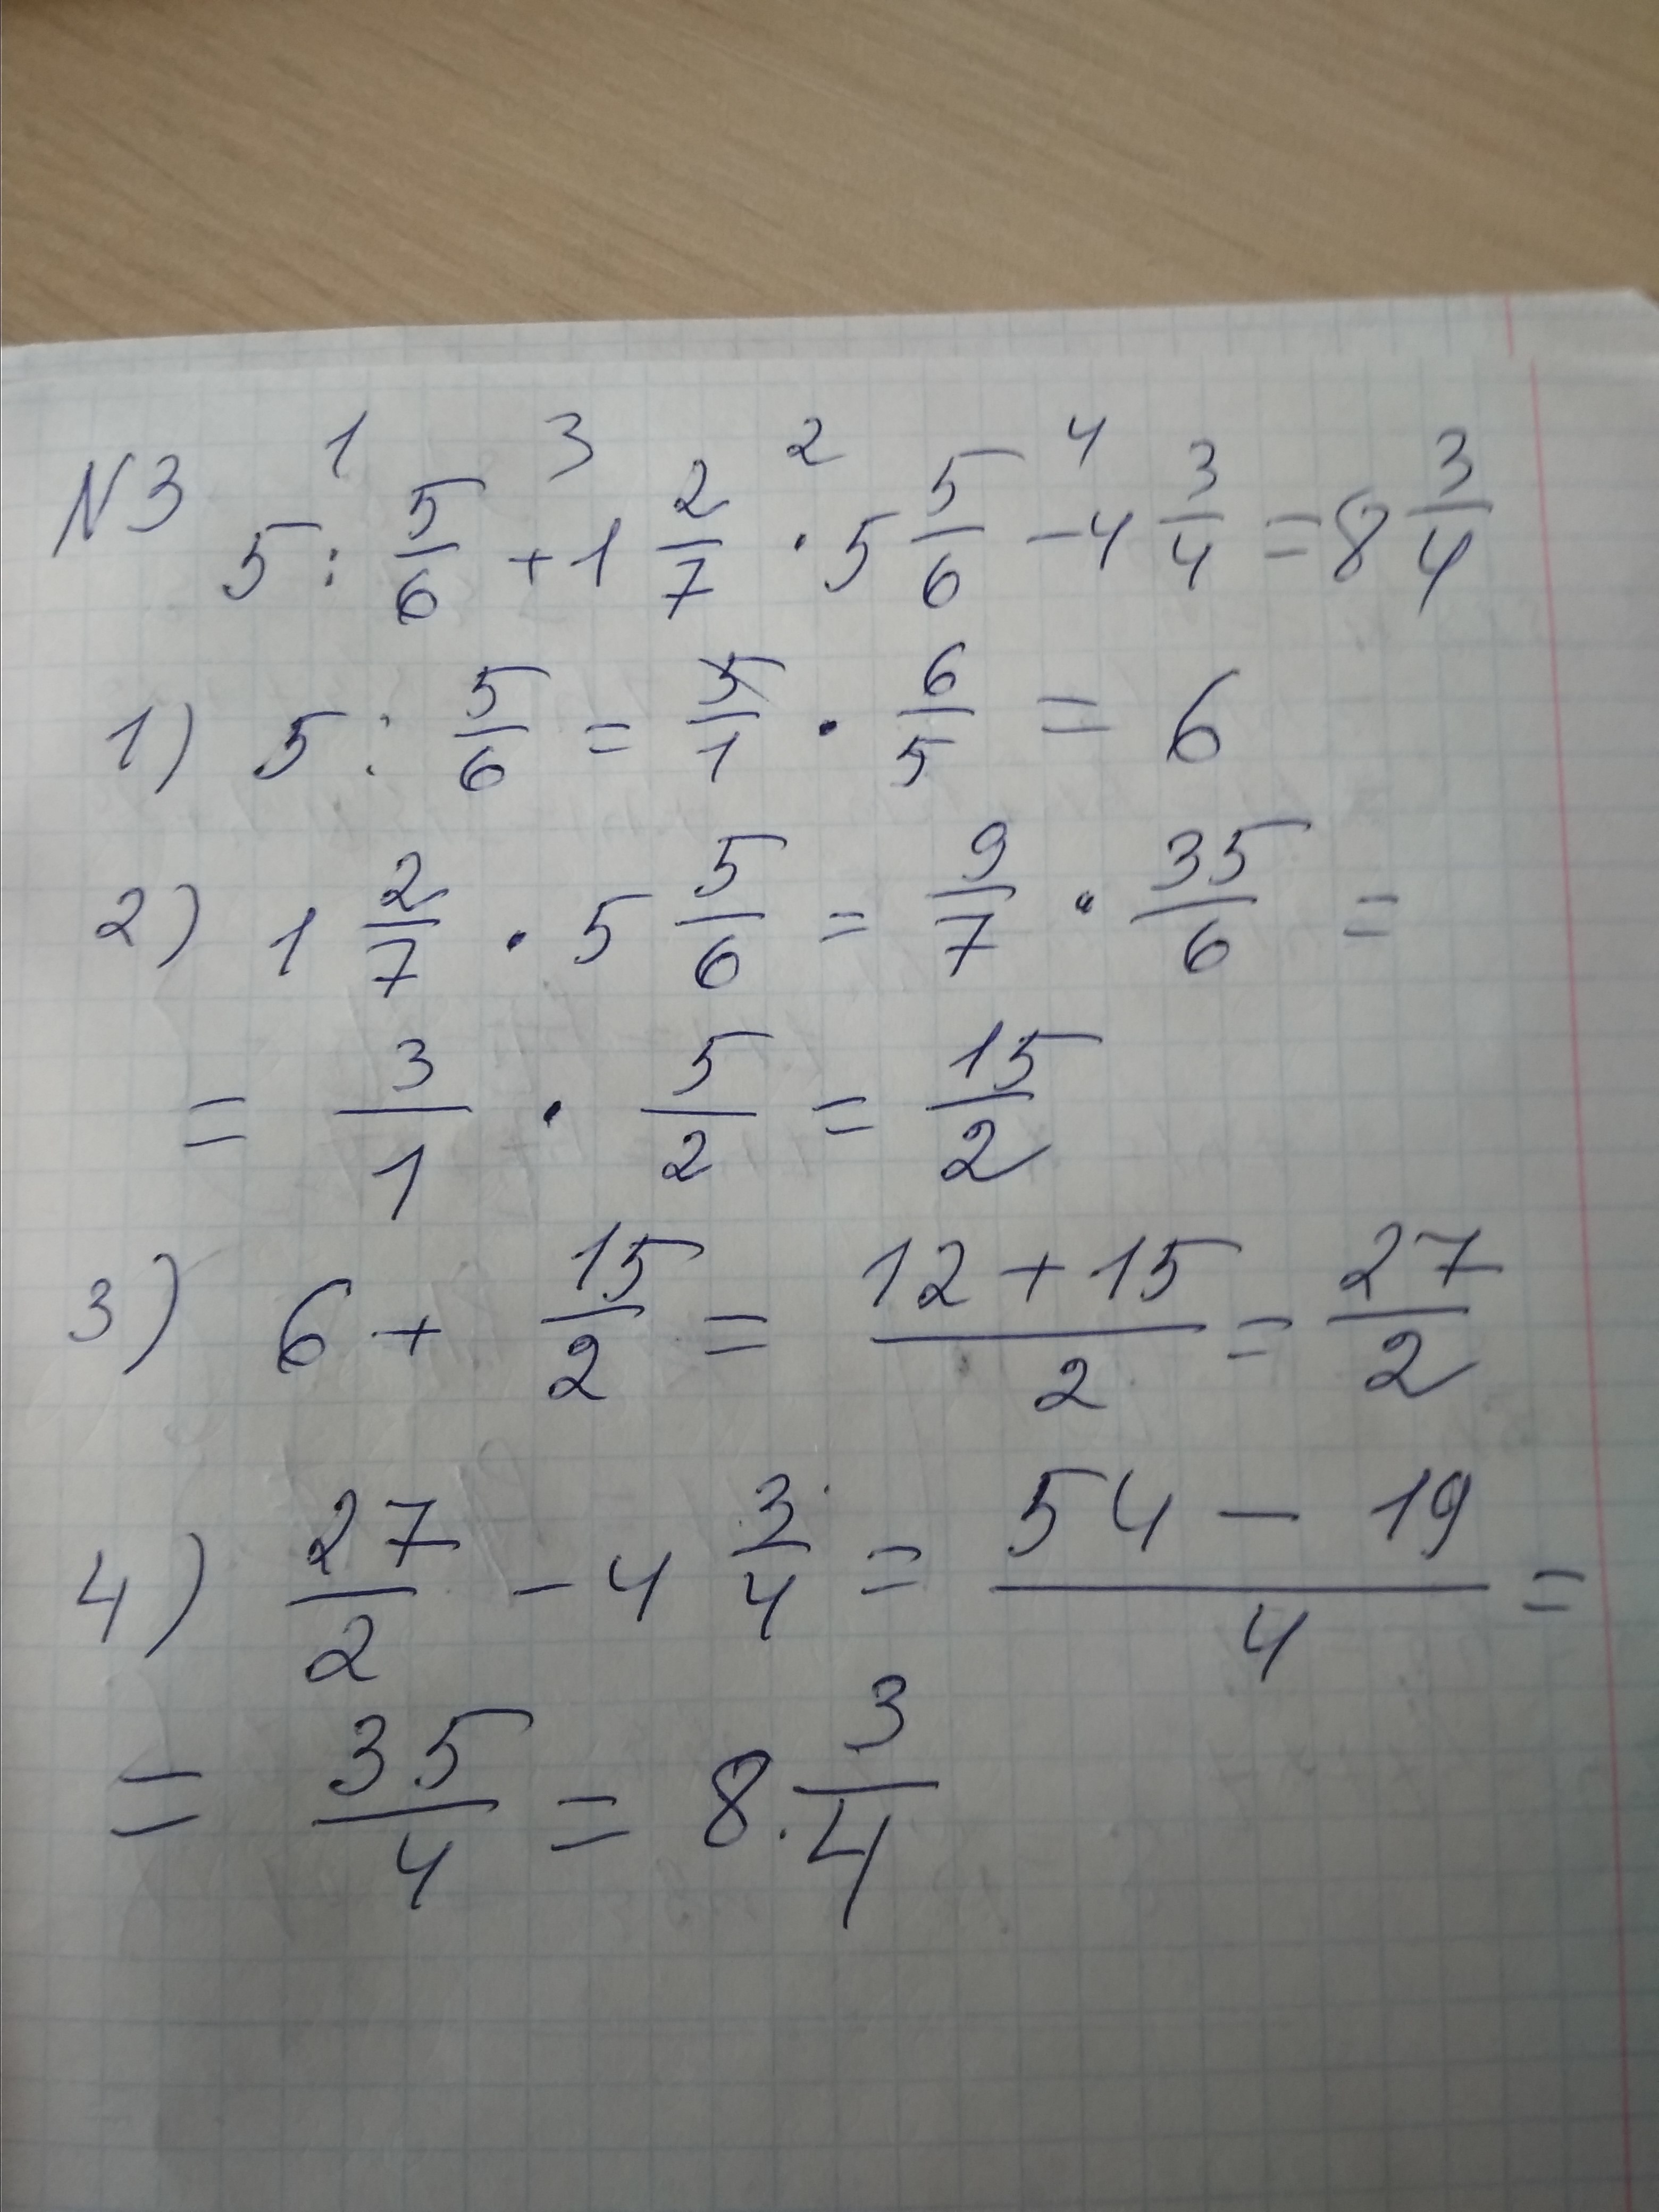 1 3 2 4
N3 5 : 5/6 + 1 2/7 · 5 5/6 - 4 3/4 = 8 3/4
1) 5 : 5/6 = 5/1 · 6/5 = 6
2) 1 2/7 · 5 5/6 = 9/7 · 35/6 =
= 3/1 · 5/2 = 15/2
3) 6 + 15/2 = 12 + 15/2 = 27/2
4) 27/2 - 4 3/4 = 54 - 19/4 =
= 35/4 = 8 3/4